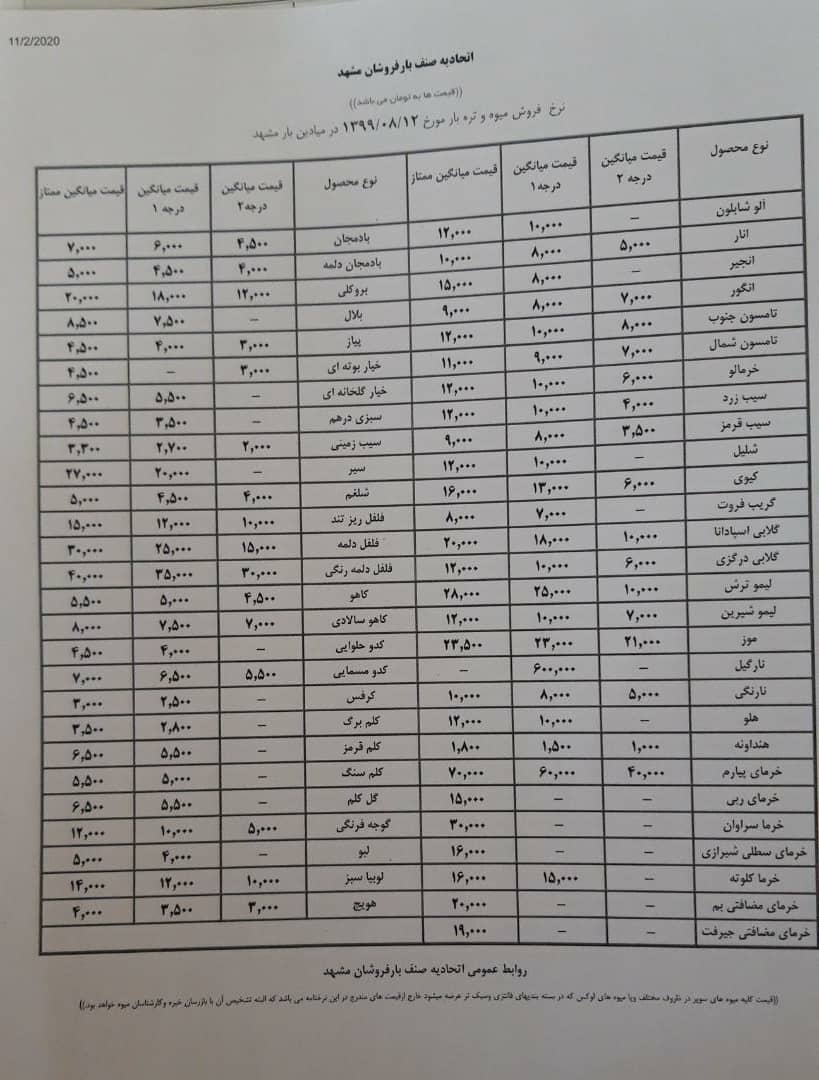 11/2/2020
اتحادیه صنف بارفروشان مشهد
((قیمت ها به تومان می باشد))
نرخ فروش میوه و تره بار مورخ ۱۳۹۹/۰۸/۱۲ در میادین بار مشهد
نوع محصول قیمت میانگین درجه ۲ قیمت میانگین درجه۱ قیمت میانگین ممتاز نوع محصول قیمت میانگین درجه۲ قیمت میانگین درجه ۱ قیمت میانگین ممتاز
آلو شابلون – ۱۰,۰۰۰ ۱۲,۰۰۰ بادمجان ۴,۵۰۰ ۶,۰۰۰ ۷,۰۰۰
انار ۵,۰۰۰ ۸,۰۰۰ ۱۰,۰۰۰ بادمجان دلمه ۴,۰۰۰ ۴,۵۰۰ ۵,۰۰۰
انجیر – ۸,۰۰۰ ۱۵,۰۰۰ بروکلی ۱۲,۰۰۰ ۱۸,۰۰۰ ۲۰,۰۰۰
انگور ۷,۰۰۰ ۸,۰۰۰ ۹,۰۰۰ بلال – ۷,۵۰۰ ۸,۵۰۰
تامسون جنوب ۸,۰۰۰ ۱۰,۰۰۰ ۱۲,۰۰۰ پیاز ۳,۰۰۰ ۴,۰۰۰ ۴,۵۰۰
تامسون شمال ۷,۰۰۰ ۹,۰۰۰ ۱۱,۰۰۰ خیار بوته ای ۳,۰۰۰ – ۴,۵۰۰
خرمالو ۶,۰۰۰ ۱۰,۰۰۰ ۱۲,۰۰۰ خیار گلخانه ای – ۵,۵۰۰ ۶,۵۰۰
سیب زرد ۴,۰۰۰ ۱۰,۰۰۰ ۱۲,۰۰۰ سبزی درهم – ۳,۵۰۰ ۴,۵۰۰
سیب قرمز ۳,۵۰۰ ۸,۰۰۰ ۹,۰۰۰ سیب زمینی ۲,۰۰۰ ۲,۷۰۰ ۳,۳۰۰
شلیل – ۱۰,۰۰۰ ۱۲,۰۰۰ سیر – ۲۰,۰۰۰ ۲۷,۰۰۰
کیوی ۶,۰۰۰ ۱۳,۰۰۰ ۱۶,۰۰۰ شلغم ۴,۰۰۰ ۴,۵۰۰ ۵,۰۰۰
گریپ فروت – ۷,۰۰۰ ۸,۰۰۰ فلفل ریز تند ۱۰,۰۰۰ ۱۲,۰۰۰ ۱۵,۰۰۰
گلابی اسپادانا ۱۰,۰۰۰ ۱۸,۰۰۰ ۲۰,۰۰۰ فلفل دلمه ۱۵,۰۰۰ ۲۵,۰۰۰ ۳۰,۰۰۰
گلابی درگزی ۶,۰۰۰ ۱۰,۰۰۰ ۱۲,۰۰۰ فلفل دلمه رنگی ۳۰,۰۰۰ ۳۵,۰۰۰ ۴۰,۰۰۰
لیمو ترش ۱۰,۰۰۰ ۲۵,۰۰۰ ۲۸,۰۰۰ کاهو ۴,۵۰۰ ۵,۰۰۰ ۵,۵۰۰
لیمو شیرین ۷,۰۰۰ ۱۰,۰۰۰ ۱۲,۰۰۰ کاهو سالادی ۷,۰۰۰ ۷,۵۰۰ ۸,۰۰۰
موز ۲۱,۰۰۰ ۲۳,۰۰۰ ۲۳,۵۰۰ کدو حلوایی – ۴,۰۰۰ ۴,۵۰۰
نارگیل – ۶۰۰,۰۰۰ – کدو مسمایی ۵,۵۰۰ ۶,۵۰۰ ۷,۰۰۰
نارنگی ۵,۰۰۰ ۸,۰۰۰ ۱۰,۰۰۰ کرفس – ۲,۵۰۰ ۳,۰۰۰
هلو – ۱۰,۰۰۰ ۱۲,۰۰۰ کلم برگ – ۲,۸۰۰ ۳,۵۰۰
هنداونه ۱,۰۰۰ ۱,۵۰۰ ۱,۸۰۰ کلم قرمز – ۵,۵۰۰ ۶,۵۰۰
خرمای پیارم ۴۰,۰۰۰ ۶۰,۰۰۰ ۷۰,۰۰۰ کلم سنگ – ۵,۰۰۰ ۵,۵۰۰
خرمای ربی – – ۱۵,۰۰۰ گل کلم – ۵,۵۰۰ ۶,۵۰۰
خرما سراوان – – ۳۰,۰۰۰ گوجه فرنگی ۵,۰۰۰ ۱۰,۰۰۰ ۱۲,۰۰۰
خرمای سطلی شیرازی – – ۱۶,۰۰۰ لبو – ۴,۰۰۰ ۵,۰۰۰
خرما کلوته – ۱۵,۰۰۰ ۱۶,۰۰۰ لوبیا سبز ۱۰,۰۰۰ ۱۲,۰۰۰ ۱۴,۰۰۰
خرمای مضافتی بم – – ۲۰,۰۰۰ هویج ۳,۰۰۰ ۳,۵۰۰ ۴,۰۰۰
خرمای مضافتی جیرفت – – ۱۹,۰۰۰
روابط عمومی اتحادیه صنف بارفروشان مشهد
((قیمت کلیه میوه های سوپر در ظروف مختلف ویا میوه های لوکس که در بسته بندیهای فانتزی وسبک تر عرضه میشود خارج ازقیمت های مندرج در این نرخنامه می باشد که البته تشخیص آن با بازرسان خبره وکارشناسان میوه خواهد بود.))